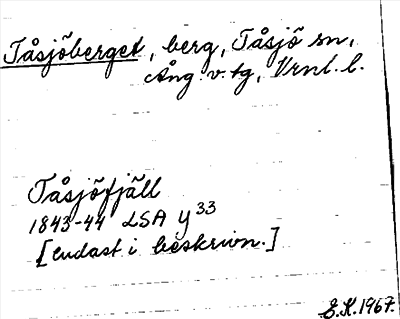 Tåsjöberget, berg, Tåsjö sn,
Ång. v. tg, Vrnl. l.
Tåsjöfjäll
1843-44 LSA Y33
[endast i beskrivn.]
E.K. 1967.